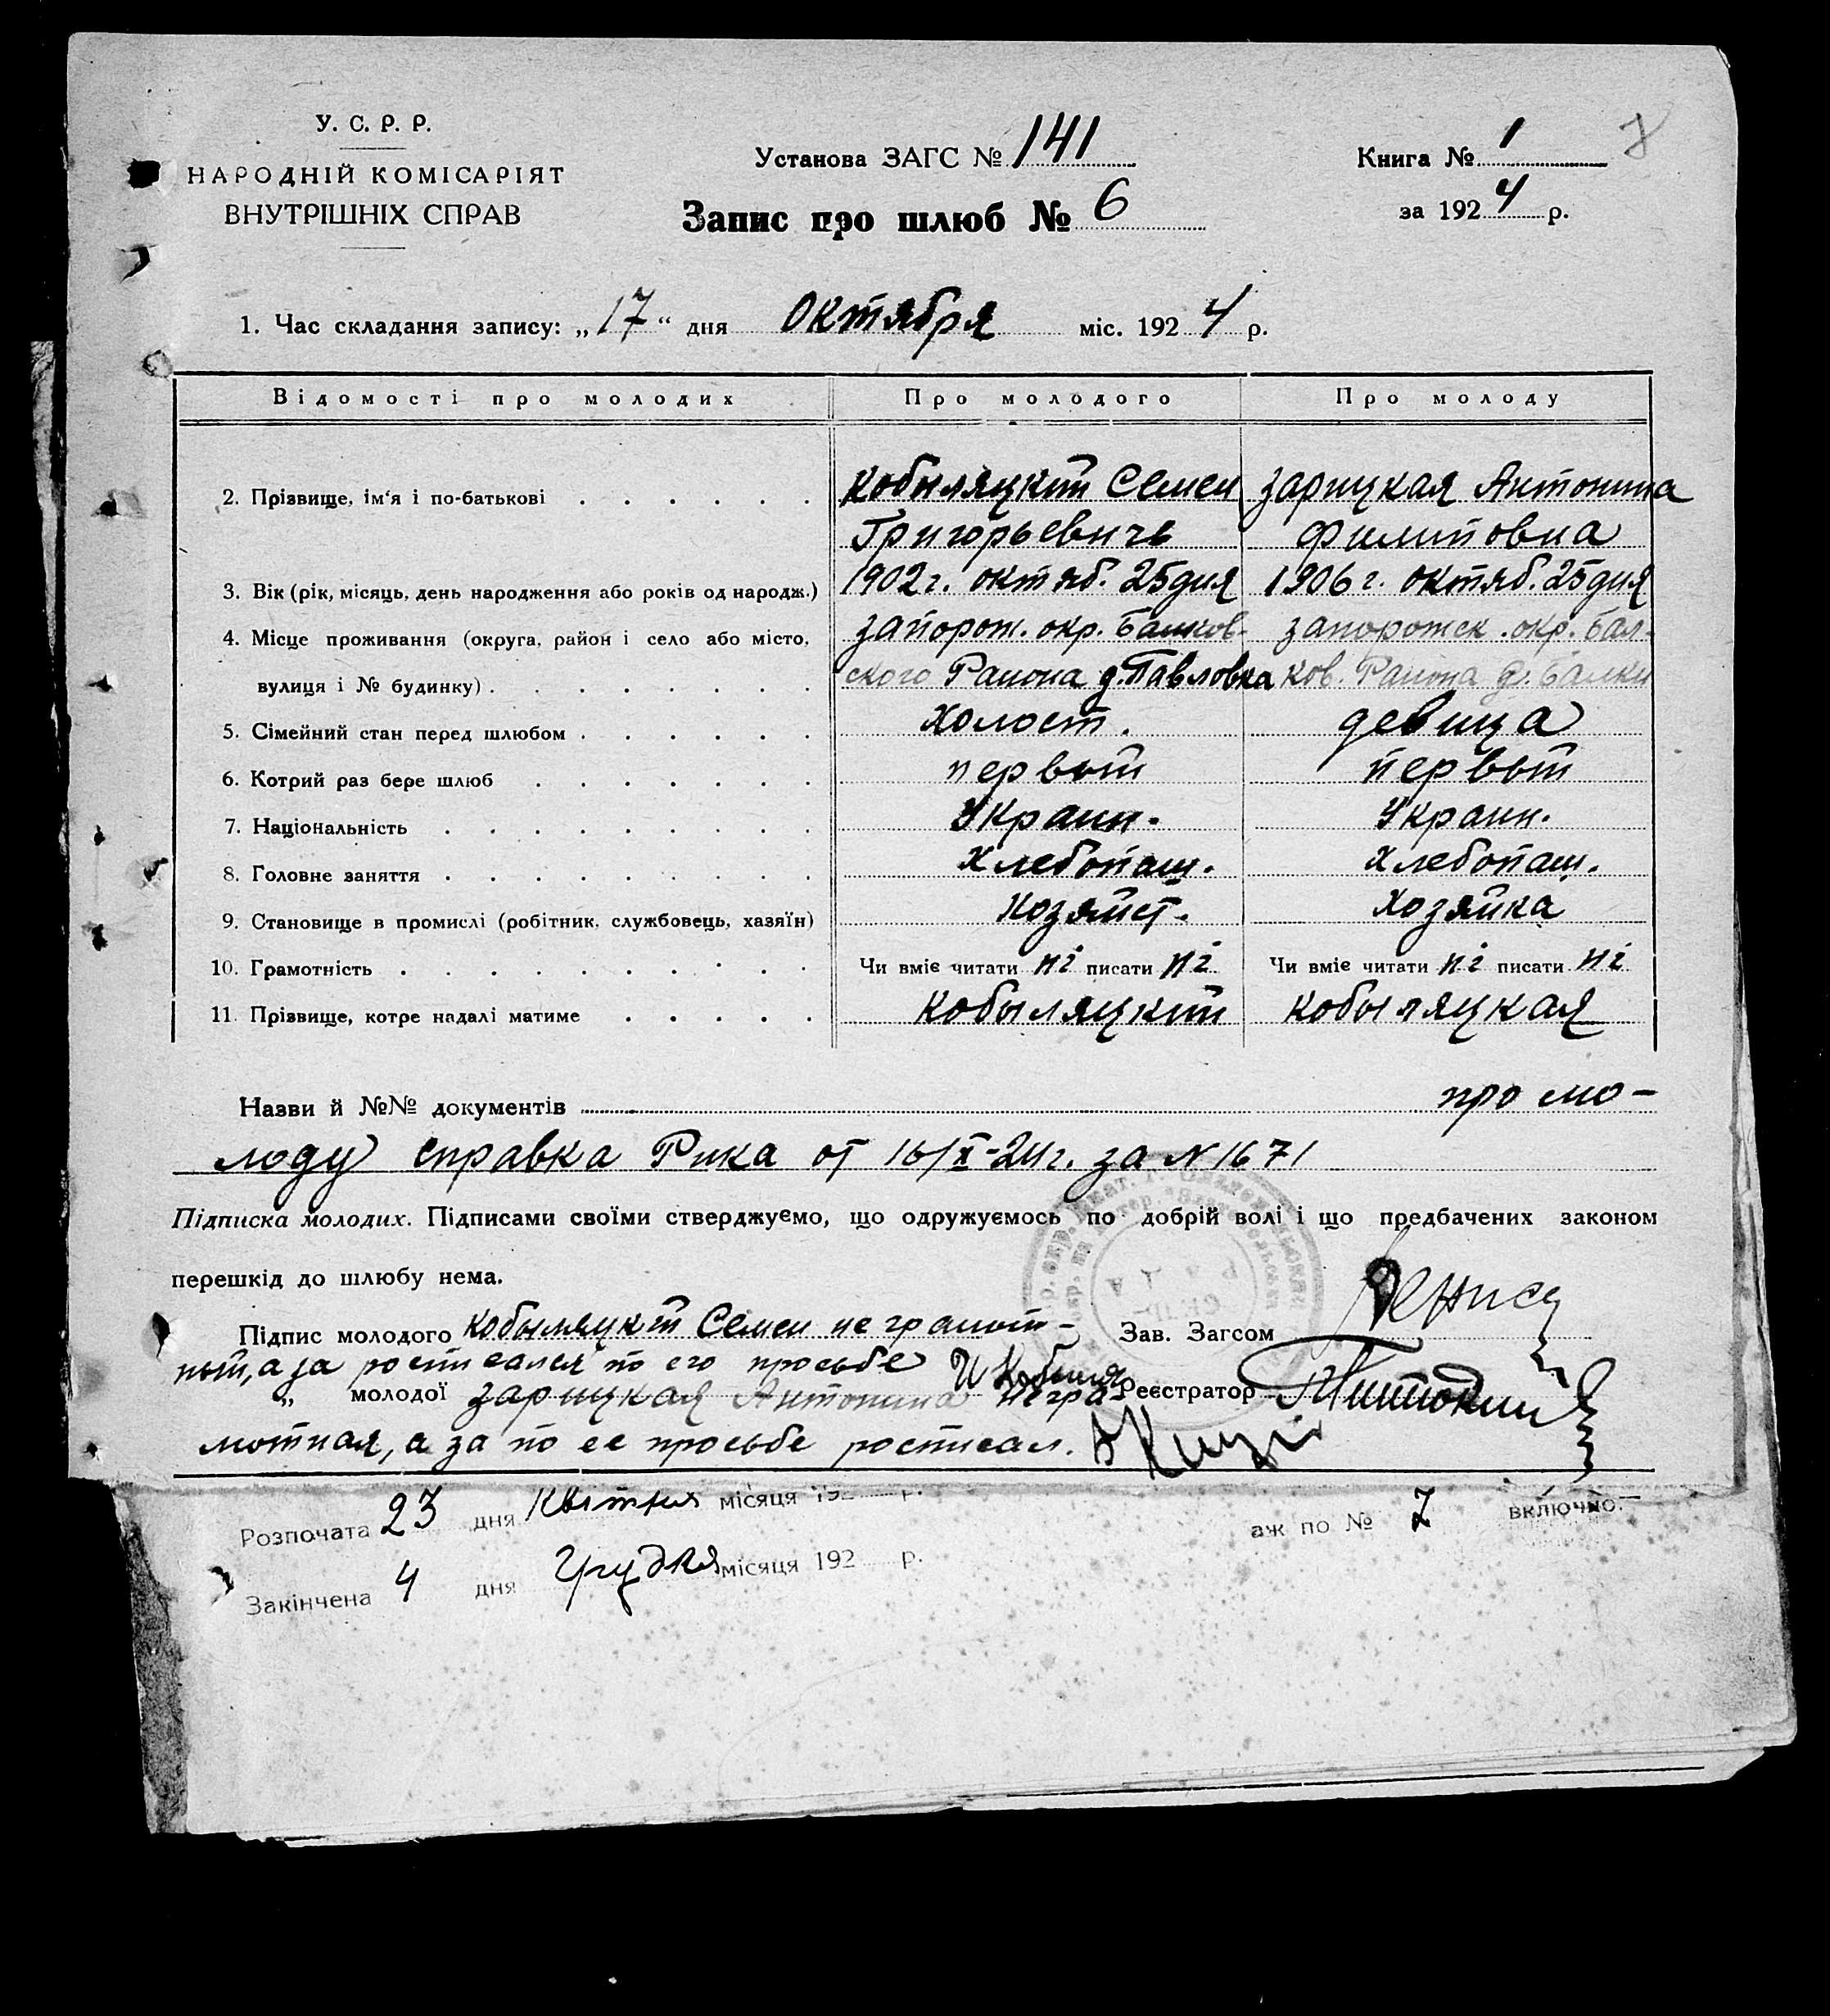 У. С. Р. Р.
НАРОДНІЙ КОМІСАРІЯТ
ВНУТРІШНІХ СПРАВ
Установа ЗАГС № 141
Запис про шлюб № 6
Книга № 1
за 1924 р.
7
1. Час складання запису: „17“ дня Октября міс. 1924 р.
Відомості про молодих Про молодого Про молоду
2. Прізвище, ім'я і по-батькові Кобыляцкий Семен Зарицкая Антонина
Григорьевичь Филиповна
3. Вік (рік, місяць, день народження або років од народж.) 1902 г. октяб. 25 дня 1906 г. октяб. 25 дня
4. Місце проживання (округа, район і село або місто, Запорож. окр. Балков- Запорожск. окр. Бал-
вулиця і № будинку) ского Района д. Павловка ков. Района д. Балки
5. Сімейний стан перед шлюбом Холост. девица
6. Котрий раз бере шлюб первый первый
7. Національність Украин. Украин.
8. Головне заняття Хлебопаш. Хлебопаш.
9. Становище в промислі (робітник, службовець, хазяїн) Хозяйст. Хозяйка
10. Грамотність Чи вміє читати ні писати ні Чи вміє читати ні писати ні
11. Прізвище, котре надалі матиме Кобыляцкий Кобыляцкая
Назви й №№ документів про мо-
лоду справка Рика от 16/X-24 г. за N 1671
Підписка молодих. Підписами своїми стверджуємо, що одружуємось по добрій волі і що предбачених законом
перешкід до шлюбу нема.
Підпис молодого Кобыляцкий Семен не грамот- Зав. Загсом
ный, а за росписался по его просьбе И Кобыля
„ молодої Зарицкая Антонина негра- Реєстратор
мотная, а за по ее просьбе росписал.
Розпочата 23 дня Квітня місяця 192 р. аж по № 7 включно.
Закінчена 4 дня Грудня місяця 192 р.